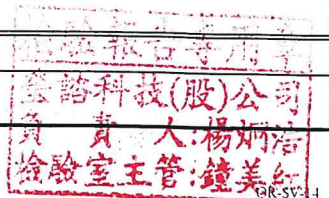 檢驗報告專用章
瑩諮科技(股)公司
負責人:楊
檢驗室主管:鐘美
QR-SV-14